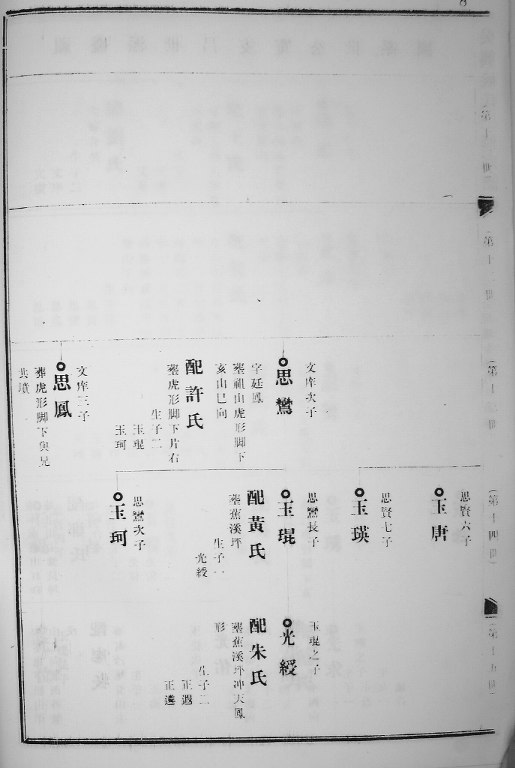 文庠次子
思鸞
字廷鳳
塟祖山虎形脚下
亥山巳向
配許氏
塟虎形脚下片右
生子二
玉琨
玉珂
文庠三子
思鳳
葬虎形脚下與兄
共墳
思賢六子
玉唐
思賢七子
玉瑛
思鸞長子
玉琨
配黃氏
塟蕉溪坪
生子一
光綬
思鸞次子
玉珂
玉琨之子
光綬
配朱氏
塟蕉溪坪冲天鳳
形
生子二
正遐
正遴
第十
世
第十
世
第十
世
第十四世
第十五世